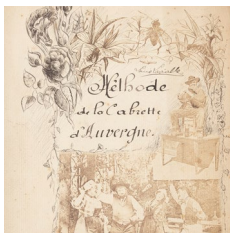 Méthode
de la Cabrette
d'Auvergne.